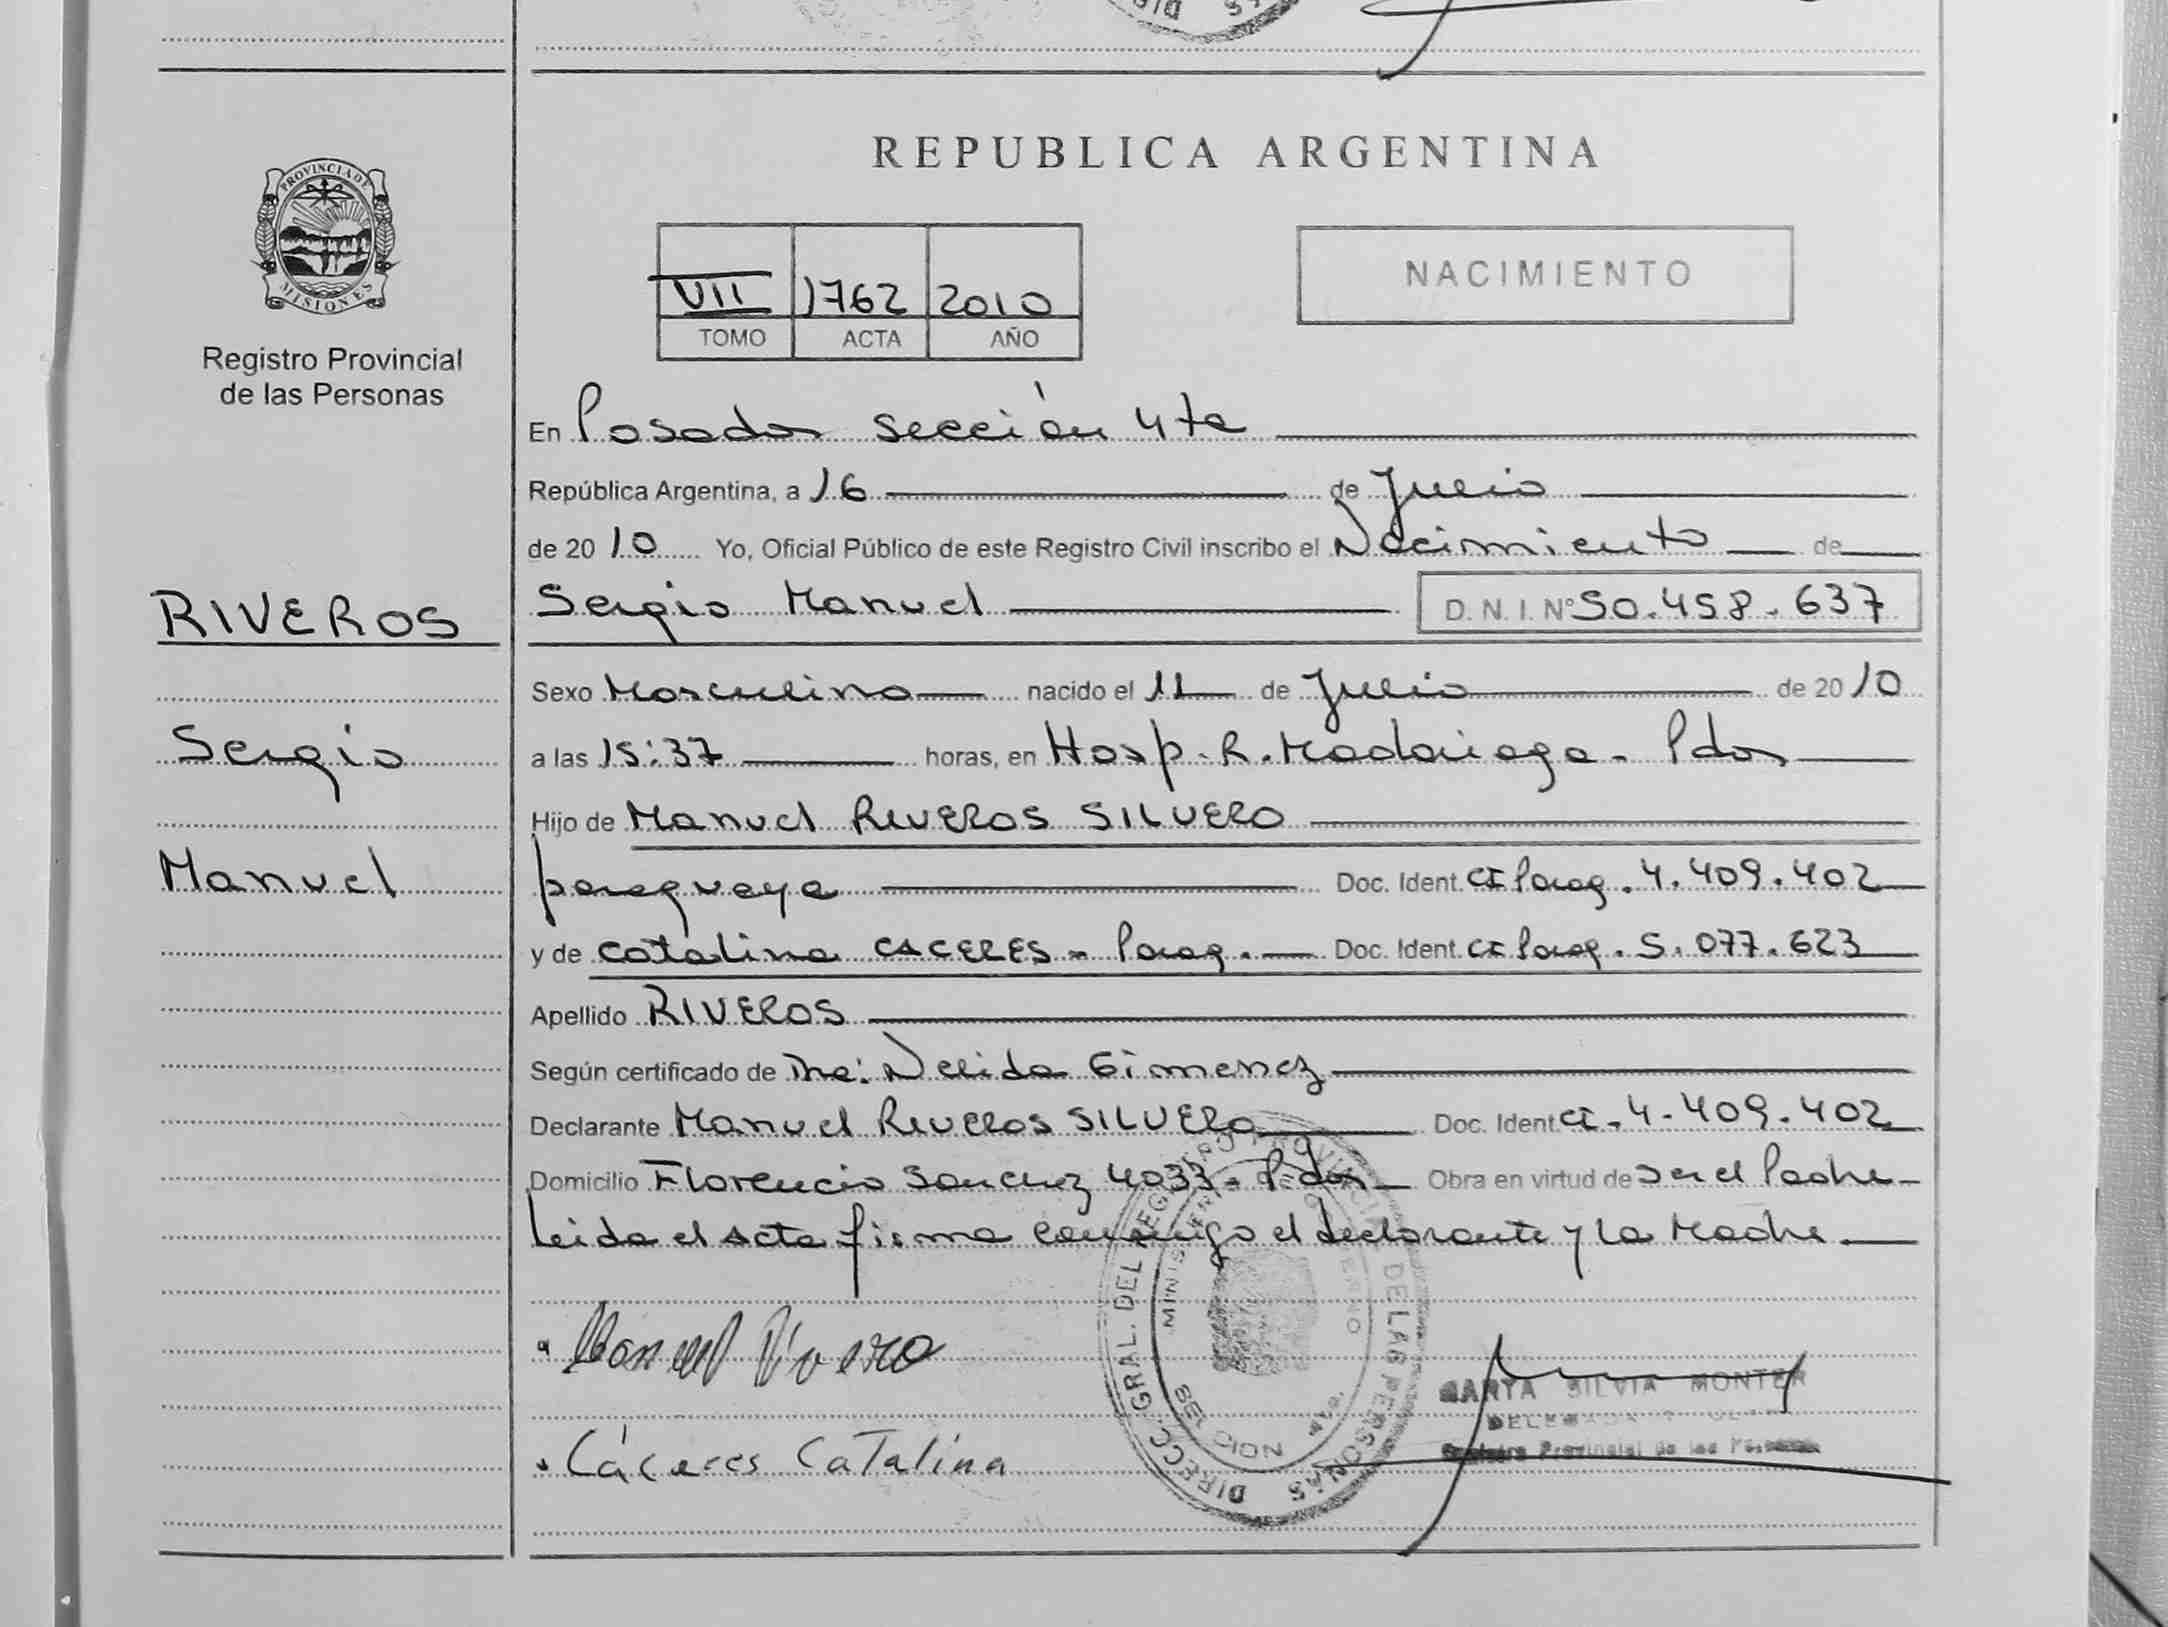 REPUBLICA ARGENTINA
PROVINCIA DE
MISIONES
Registro Provincial
de las Personas
VII 1762 2010
TOMO ACTA AÑO
NACIMIENTO
En Posadas sección 4ta
República Argentina, a 16 de Julio
de 2010 Yo, Oficial Público de este Registro Civil inscribo el Nacimiento de
RIVEROS
Sergio Manuel D. N. I. Nº 50.458.637
Sexo Masculino nacido el 11 de Julio de 2010
Sergio
a las 15:37 horas, en Hosp. R. Madariaga - Pdas
Hijo de Manuel RIVEROS SILVERO
Manuel
paraguaya Doc. Ident. CI Parag. 4.409.402
y de Catalina CACERES - Parag. Doc. Ident. CI Parag. 5.077.623
Apellido RIVEROS
Según certificado de Dra: Nelida Gimenez
Declarante Manuel RIVEROS SILVERO Doc. Ident CI. 4.409.402
Domicilio Florencio Sanchez 4033 - Pdas Obra en virtud de ser el Padre
Leida el acta firma conmigo el declarante y la Madre
Manuel Rivero
Cáceres Catalina
DIRECC. GRAL. DEL REGISTRO PROVINCIAL DE LAS PERSONAS
SILVIA MONTER
Registro Provincial de las Personas